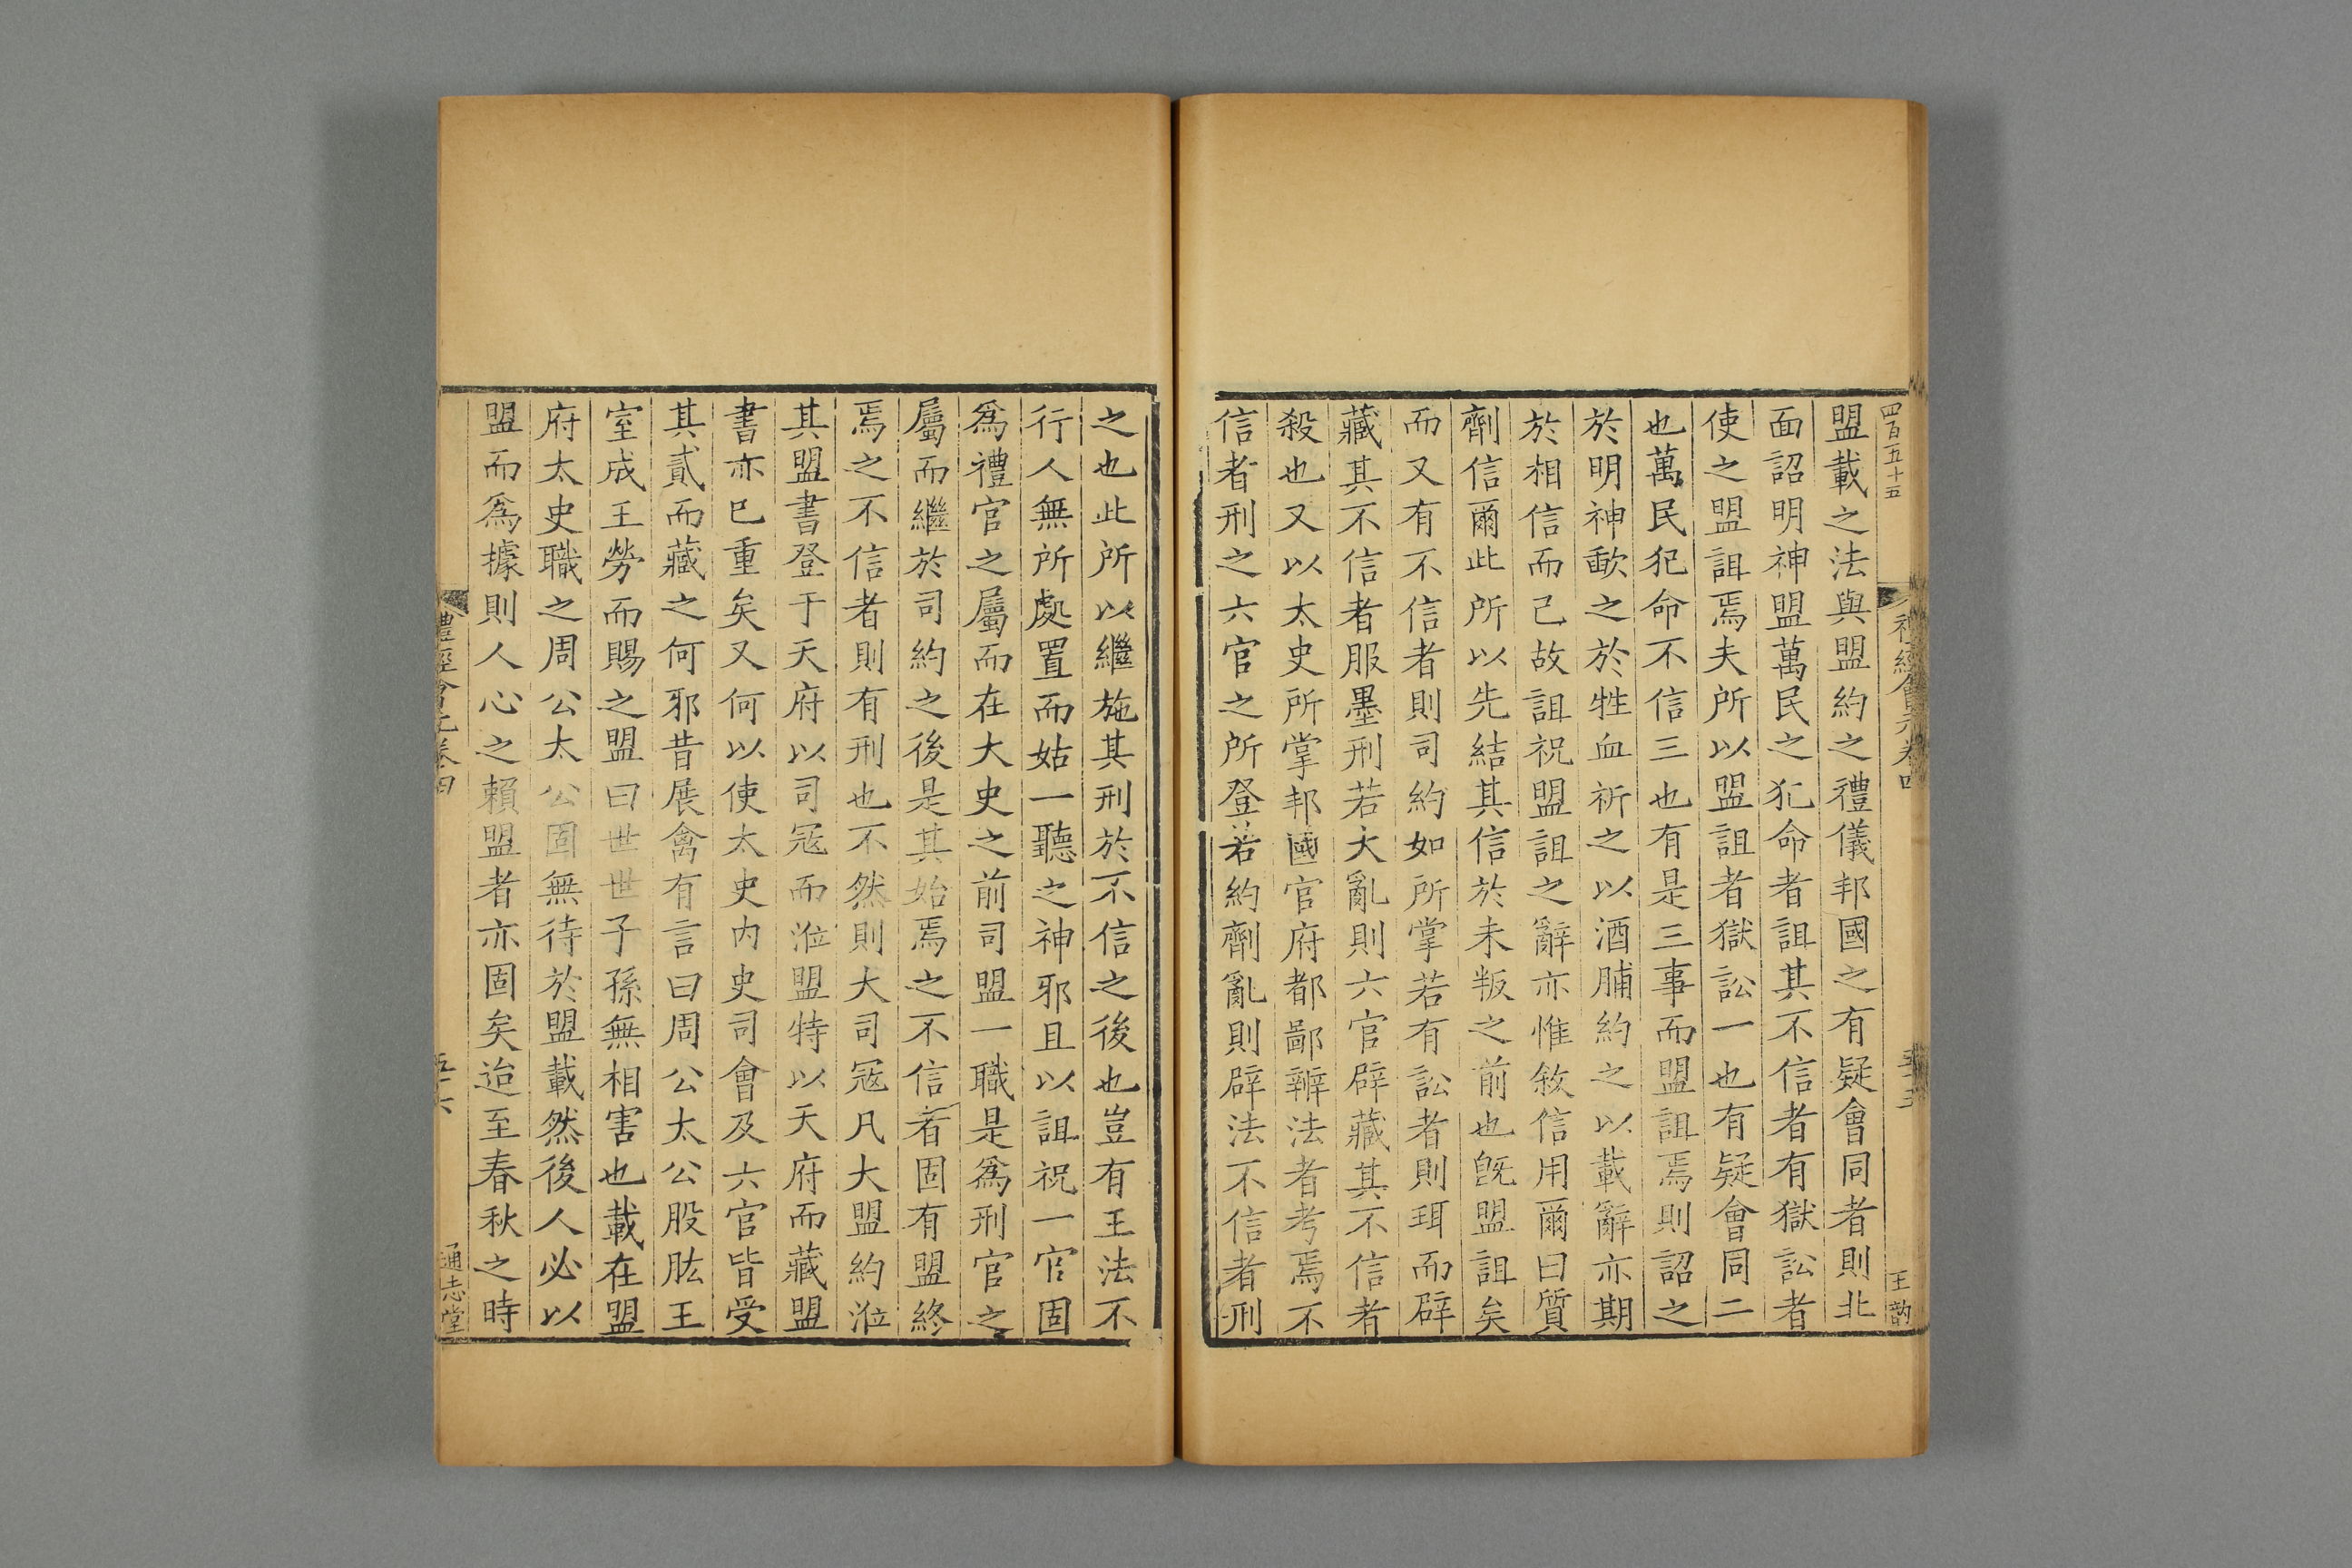 四百五十五
禮經會元卷四
五十五
王
盟載之法與盟約之禮儀邦國之有疑會同者則北
面詔明神盟萬民之犯命者詛其不信者有獄訟者
使之盟詛焉夫所以盟詛者獄訟一也有疑會同二
也萬民犯命不信三也有是三事而盟詛焉則詔之
於明神歃之於牲血祈之以酒脯約之以載辭亦期
於相信而己故詛祝盟詛之辭亦惟敘信用爾曰質
劑信爾此所以先結其信於未叛之前也旣盟詛矣
而又有不信者則司約如所掌若有訟者則珥而辟
藏其不信者服墨刑若大亂則六官辟藏其不信者
殺也又以太史所掌邦國官府都鄙辨法者考焉不
信者刑之六官之所登若約劑亂則辟法不信者刑
之也此所以繼施其刑於不信之後也豈有王法不
行人無所處置而姑一聽之神邪且以詛祝一官固
爲禮官之屬而在大史之前司盟一職是爲刑官之
屬而繼於司約之後是其始焉之不信者固有盟終
焉之不信者則有刑也不然則大司冦凡大盟約涖
其盟書登于天府以司冦而涖盟特以天府而藏盟
書亦已重矣又何以使太史內史司會及六官皆受
其貳而藏之何邪昔展禽有言曰周公太公股肱王
室成王勞而賜之盟曰世世子孫無相害也載在盟
府太史職之周公太公固無待於盟載然後人必以
盟而爲據則人心之賴盟者亦固矣迨至春秋之時
禮經會元卷四
五十六
通志堂